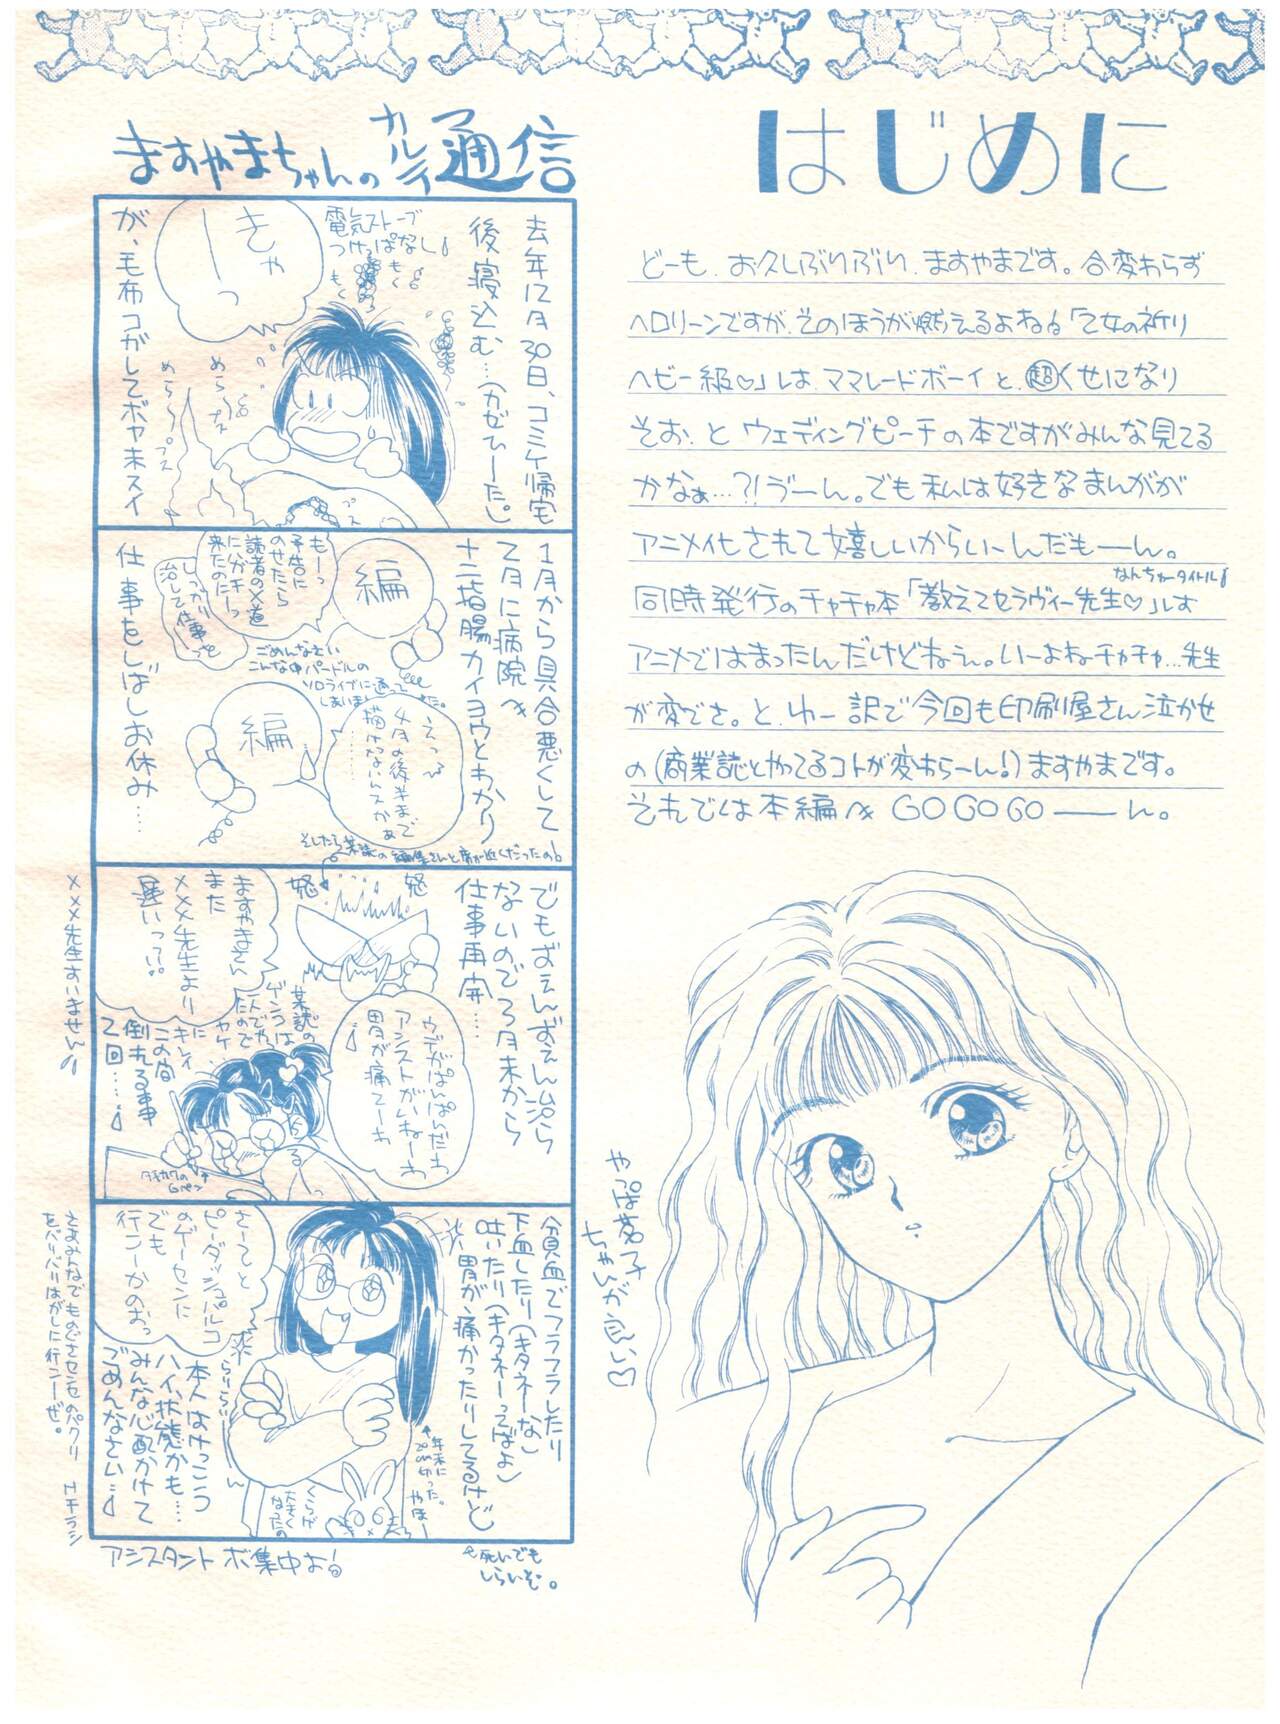 はじめに
どーも、お久しぶりぶり、ますやまです。合変わらず
ヘロリーンですが、そのほうが燃えるよね。「乙女の祈り
ヘビー級♡」は、ママレードボーイと、超くせになり
そお、と ウェディングピーチの本ですがみんな見てる
かなぁ…?!ゔーん。でも私は好きなまんがが
アニメイ化されて嬉しいからいーんだもーーん。
なんちゅータイトル
同時発行のチャチャ本「教えてセラヴィー先生♡」は
アニメではまったんだけどねぇ。いーよねチャチャ…先生
が変でさ。と、ゆー訳で今回も印刷屋さん泣かせ
の(商業誌とやってるコトが変わらーん!)ますやまです。
それでは本編へ GO GO GO ーーん。
やっぱ茗子
ちゃんが良い♡
ますやまちゃんのカルテ通信
去年12月30日、コミケ帰宅
後寝込む…(カゼひーた。)
電気ストーブ
つけっぱなし
もく
もく
きゃーっ
が、毛布コガしてボヤ未スイ
めら〜
ブス
めら〜
ブス
ブス
1月から具合悪くして
2月に病院へ
十二指腸カイヨウとわかり
編
もーっ
予告に
のせたら
読者の×道
に分がキーっ
来たのに
しっかり
治して仕事
ごめんなさい
こんな中バードルの
ソロライブに通って
しまいました。
編
えっっ
4月の後半まで
描けないんスかぁ
……
仕事をしばしお休み…
そしたら某誌の編集さんと席が近くだったの
でもぜぇんぜぇん治ら
ないので3月末から
仕事再開…
怒
怒
ますやまさん
また
×××先生より
遅いって
×××先生すいません
ウデがぱんぱんだわ
アシストがいねーわ
胃が痛てーわ
某誌の
ゲンコウは
一人でや
たので
ヤケ
に
キレイ
この間
倒れる事
2回…
タチカワの
Gペン
貧血でフラフラしたり
下血したり(キタネーな)
吐いたり(キタネーってばよ)
胃が痛かったりしてるけど
さーてと
ピーダッシュパルコ
のゲーセンに
でも
行こーかのおっ
らりらりーーん
本人はけっこう
ハイ状態かも…
みんな心配かけて
ごめんなさい…
年末に
20cm切った。
やほー
くらげ
大きく
なったの
さあみんなでものぐさセンセのパクリ
をバリバリはがしに行こーぜ。
Hチラシ
アシスタントボ集中よ
死いでも
しらいぞ。